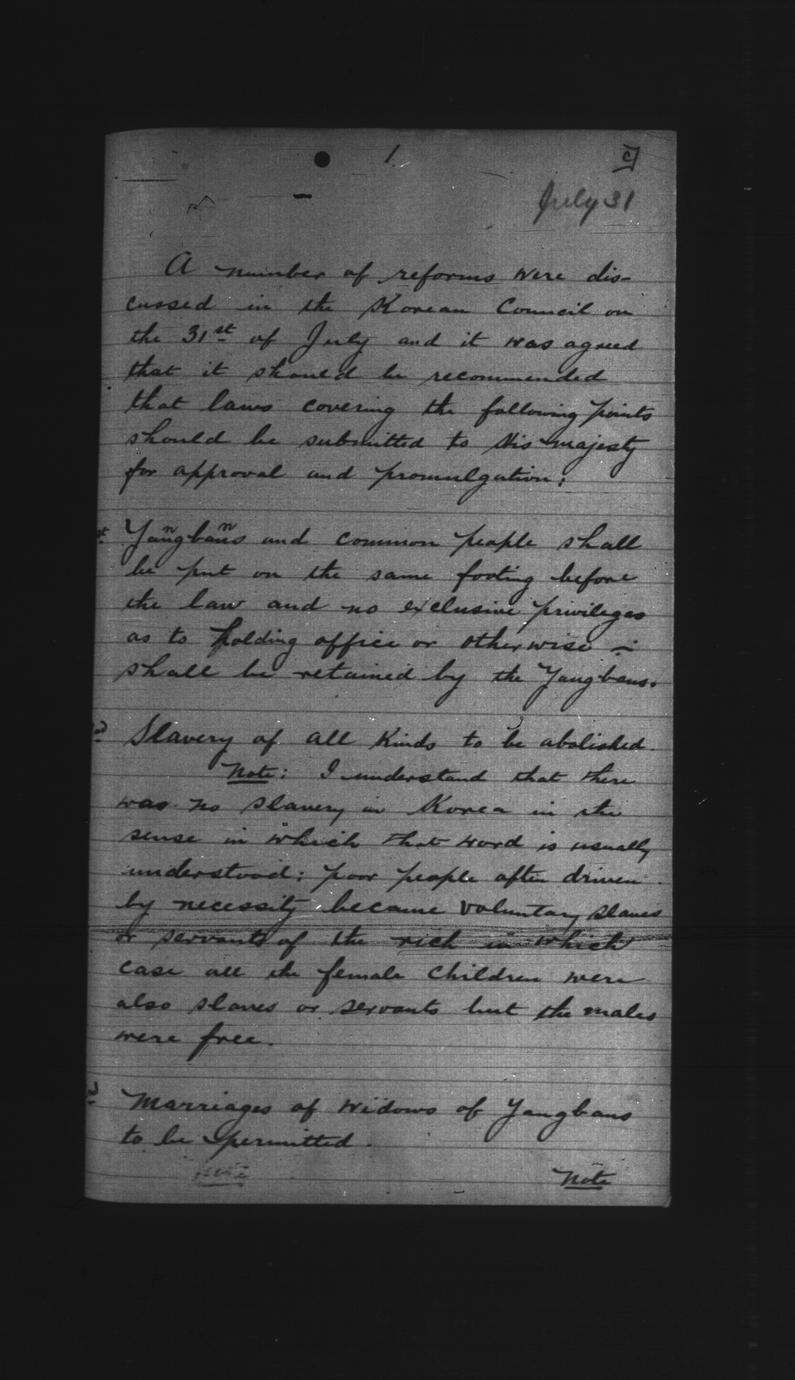 1.
C
July 31
A number of reforms were dis-
cussed in the Korean Council on
the 31st of July and it was agreed
that it should be recommended
that laws covering the following points
should be submitted to His majesty
for approval and promulgation:
st Yangbans and common people shall
be put on the same footing before
the law and no exclusive privileges
as to holding office or otherwise
shall be retained by the Yangbans.
Slavery of all kinds to be abolished.
Note: I understand that there
was no slavery in Korea in the
sense in which that word is usually
understood: poor people often driven
by necessity became voluntary slaves
or servants of the rich in which
case all the female children were
also slaves or servants but the males
were free.
Marriages of widows of Yangbans
to be permitted.
Note